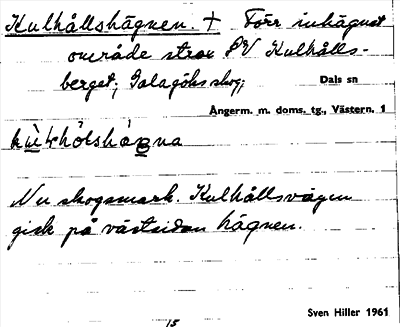 Kulhållshägnen. † Förr inhägnat
område strax SV Kulhålls-
berget; Galagöhs skog;
Dals sn
Ångerm. m. doms. tg., Västern. 1
Nu skogsmark. Kulhållsvägen
gick på västsidan hägnen.
Sven Hiller 1961
15